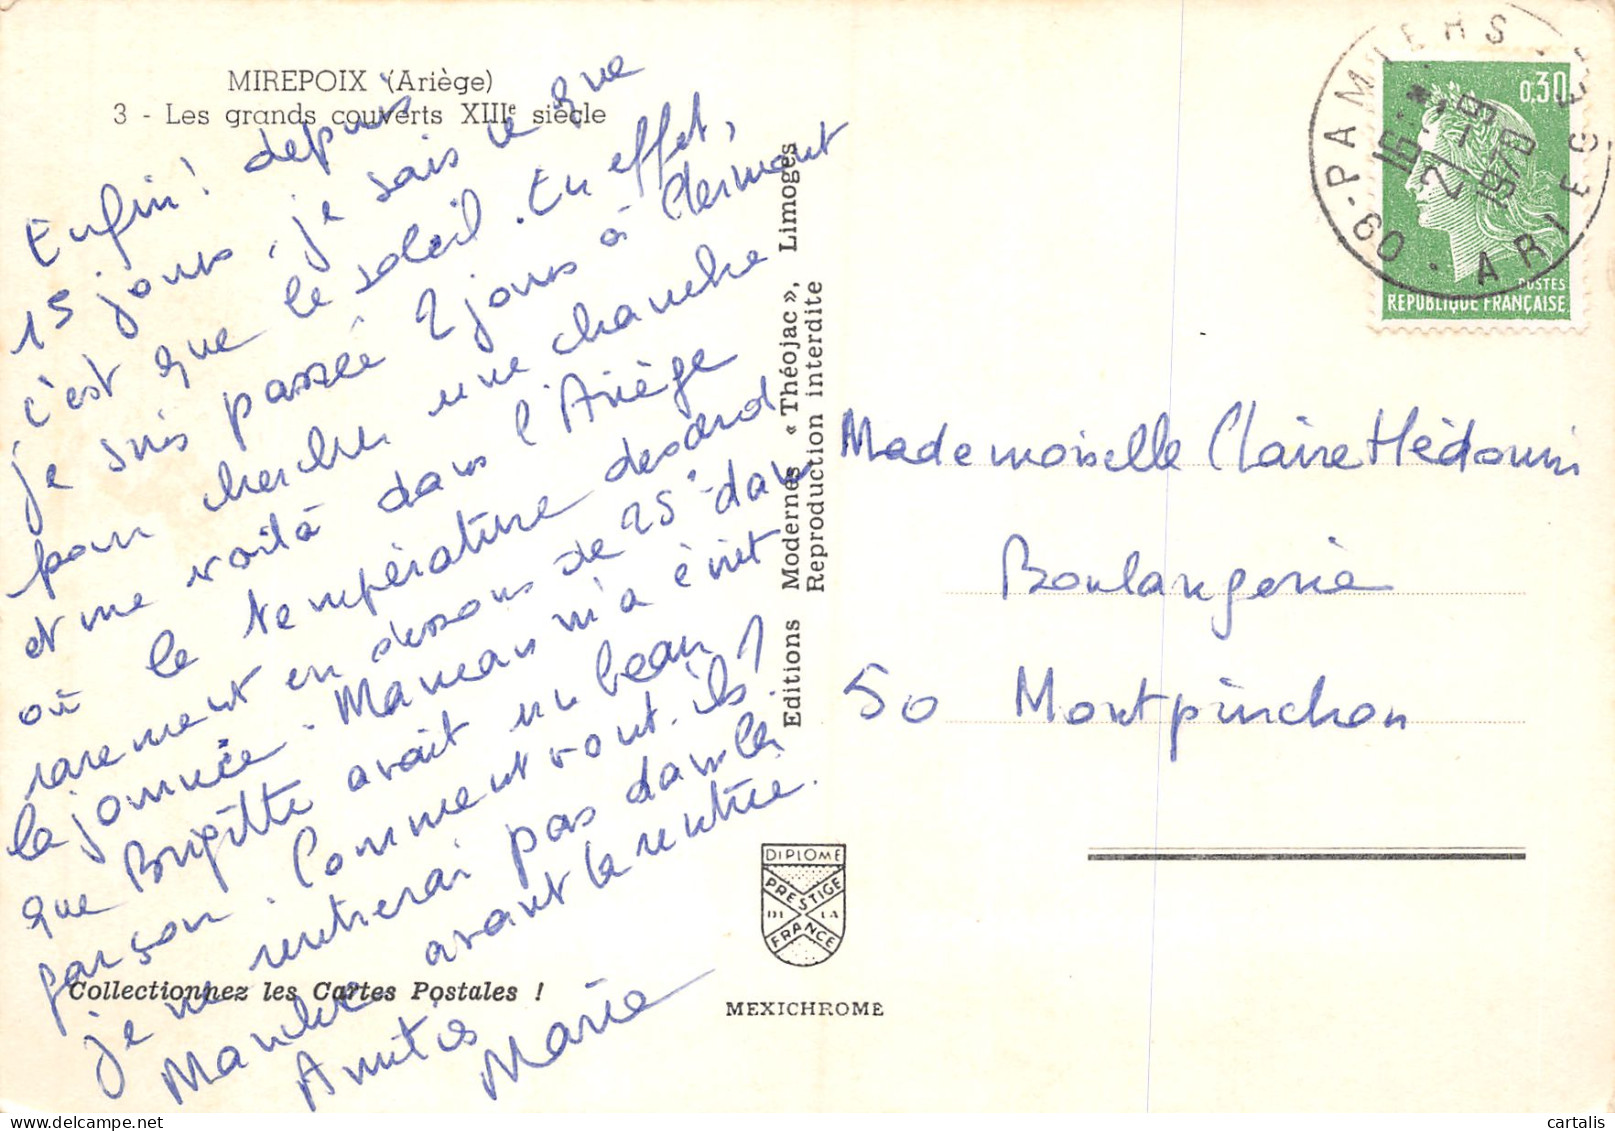 MIREPOIX (Ariège)
3 - Les grands couverts XIIIe siècle
Enfin ! depuis
15 jours, je sais ce que
c'est que le soleil. En effet,
je suis passée 2 jours à Clermont
pour chercher une chambre
et me voilà dans l'Ariège
où la température descend
rarement en dessous de 25° dans
la journée. Maman m'a écrit
que Brigitte avait un beau
garçon. Comment vont-ils ?
je ne rentrerai pas dans la
Manche avant la rentrée.
Amitiés
Marie
Collectionnez les Cartes Postales !
Editions Modernes « Théojac », Limoges
Reproduction interdite
DIPLOME
PRESTIGE
DE LA
FRANCE
MEXICHROME
PAMIERS
09 - ARIEGE
16 H
21 - 9
1970
0,30
POSTES
REPUBLIQUE FRANÇAISE
Mademoiselle Claire Hédouin
Boulangerie
50 Montpinchon
cartalis